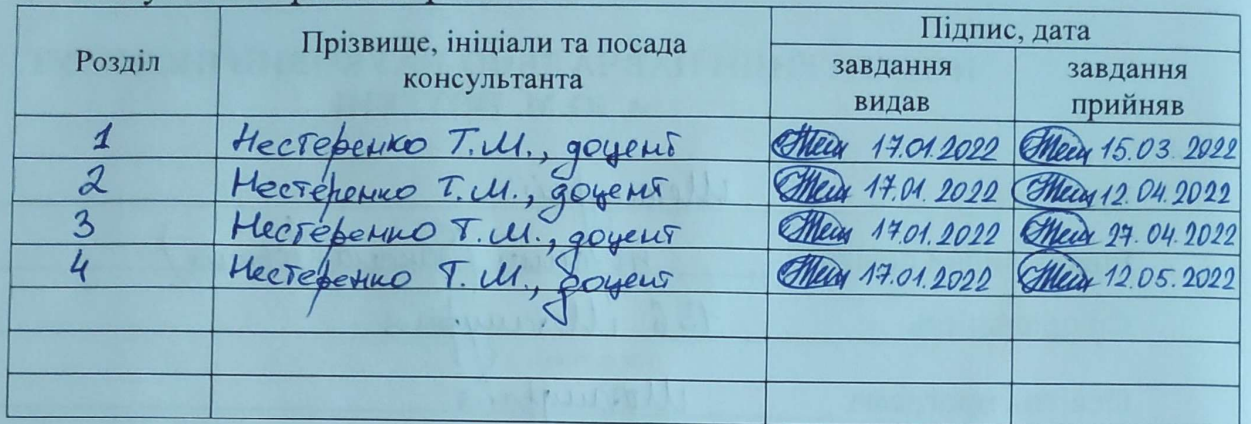 Підпис, дата
Розділ
Прізвище, ініціали та посада
консультанта
завдання
видав
завдання
прийняв
1 Нестеренко Т.М., доцент 17.01.2022 15.03.2022
2 Нестеренко Т.М., доцент 17.01.2022 12.04.2022
3 Нестеренко Т.М., доцент 17.01.2022 27.04.2022
4 Нестеренко Т.М., доцент 17.01.2022 12.05.2022